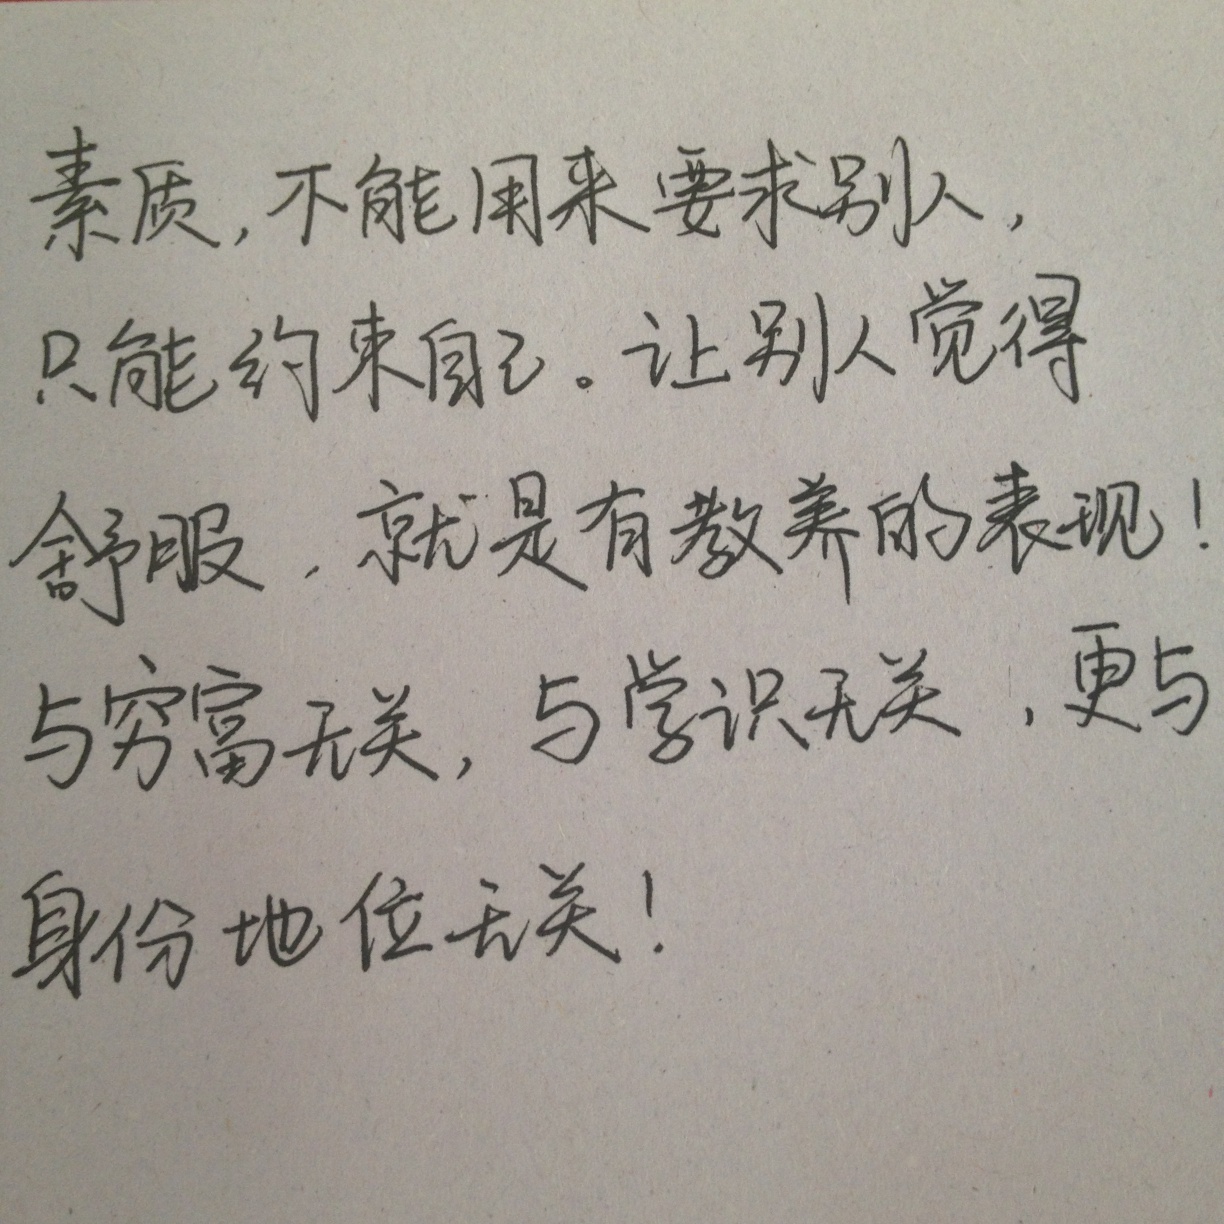 素质,不能用来要求别人,
只能约束自己。让别人觉得
舒服,就是有教养的表现!
与穷富无关,与学识无关,更与
身份地位无关!